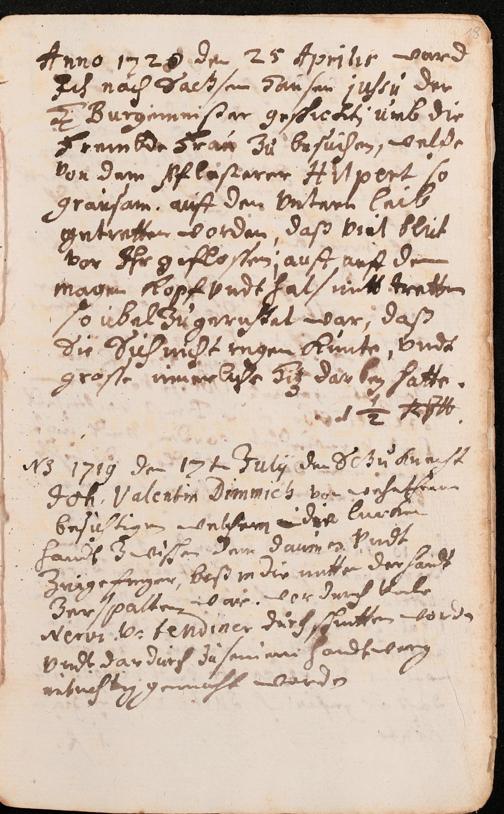 Anno 1720 den 25 Aprilis ward
Ich nach Sachsen hausen jussu der
Burgemeister geschickt, umb die
frembde Frau zu besuchen, welche
von dem Pflasterer Hilpert so
grausam auff den unteren leib
getretten worden, daß viel blut
von Ihr geflossen, auch auff dem
magen Kopf undt halß mitt tretten
so übel zugerichtet war, daß
Sie Sich nicht regen kunte, undt
grosse innerliche Hitz darbey hatte.
1/2
N3 1719 den 17t July den Schu Knecht
Joh. Valentin Dimmich von
besichtigen welchem die lincke
handt zwischen dem daumen undt
Zeigefinger, biß in die mitten der handt
Zerspalten war. wordurch viele
Nervi u: tendines durchschnitten worden
undt dardurch zu seinem handtwerg
untüchtig gemacht worden